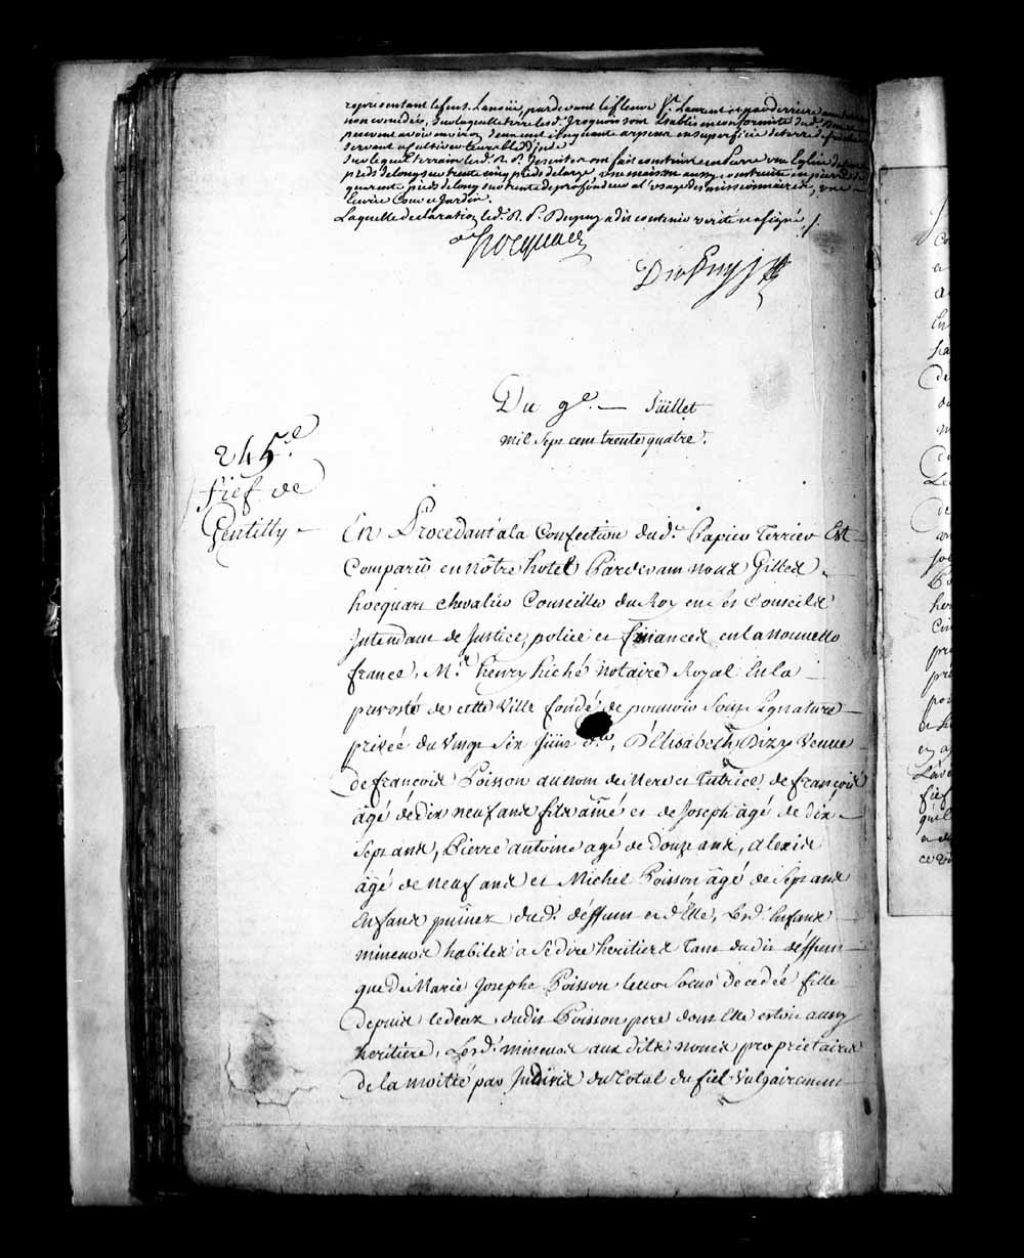 representant lefleuve S.t Laurent et par derriere
non concedées, Surlaquelle terre lesd. Iroquois sont Etablis en conformité dud.
peuvent avoir environ cinquante arpens en superficie de terre
servant a cultiver leurs bled d'jnde
Surlequel terrain lesd. R. P. Jesuites ont fait construire en pierre une Eglise de
pieds de long sur trente cinq pieds de large, une maison aussy construite en pierre de
quarente pieds de long sur trente de profondeur al'usage des missionnaires, une
Ecurie Cour et Jardin.
Laquelle declaration led. R. P. Dupuy a dit contenir verité et a signé ./.
hocquart
Du Puy j
Du 9.e Juillet
mil Sept cent trente quatre.
245.e
fief de
Gentilly
En Procedant a la Confection dud. Papier Terrier Est
Comparü en nôtre hotel Pardevant nous Gilles
hocquart chevalier Conseiller du Roy en ses Conseils
Intendant de Justice, police et finances en la nouvelle
france, M.r henry hiché notaire Royal En la
prevosté de cette Ville fondé de pouvoir Sous Signature
privée du Vingt Six Juin d.er, D'Elisabeth Dizy Veuve
de francois Poisson au nom de Mere et Tutrice de francois
âgé de dix neuf ans fils aîné et de Joseph âgé de dix
Sept ans, Pierre antoine agé de Douze ans, alexis
âgé de neuf ans et Michel Poisson âgé de Sept ans
Enfans puînez dud. déffunt et d'Elle, Lesd. Enfans
mineurs habiles a Se dire heritiers Tant dudit déffunt
que de Marie Josephe Poisson leur Soeur décedée fille
depuis le deceds dudit Poisson pere dont Elle estoit aussy
heritiere, Lesd. mineurs aux dits noms proprietaires
de la moitié par Indivis du total du fief Vulgairement